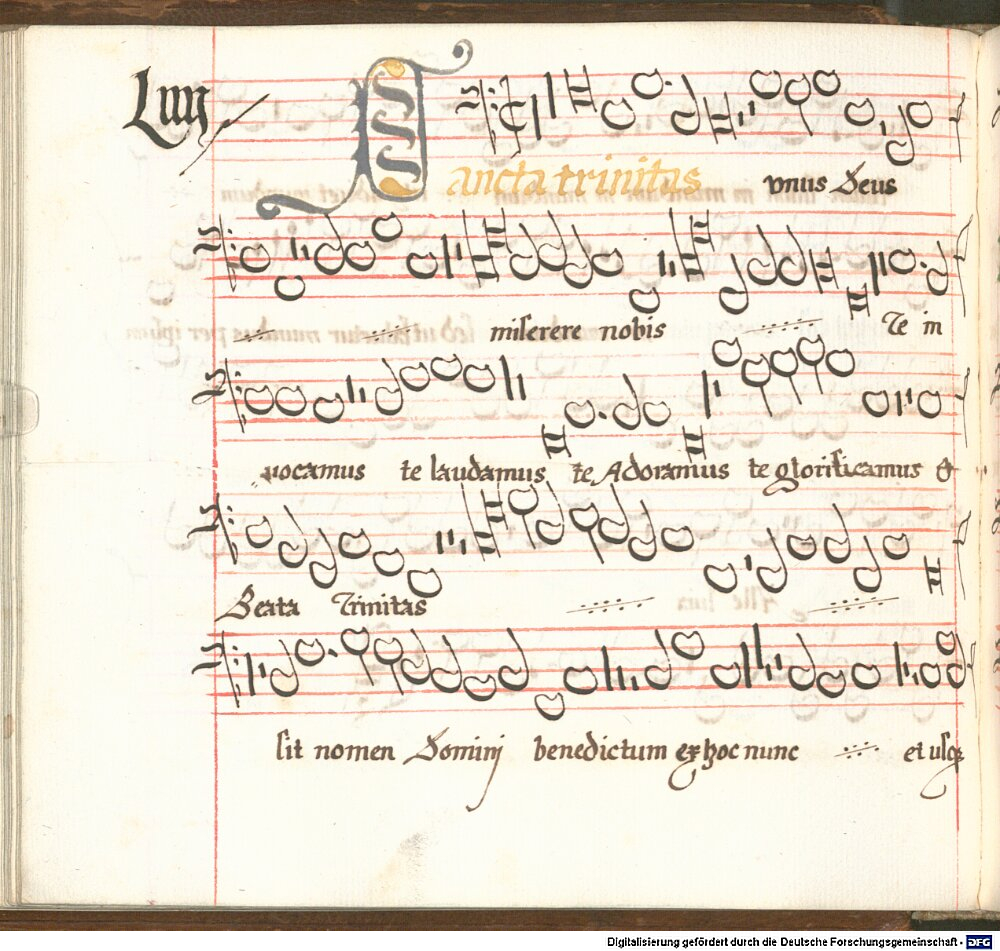 Sancta trinitas vnus Deus
miserere nobis Te in
uocamus te laudamus te Adoramus te glorificamus &
Beata Trinitas
sit nomen Dominj benedictum ex hoc nunc et usq;
Digitalisierung gefördert durch die Deutsche Forschungsgemeinschaft - DFG